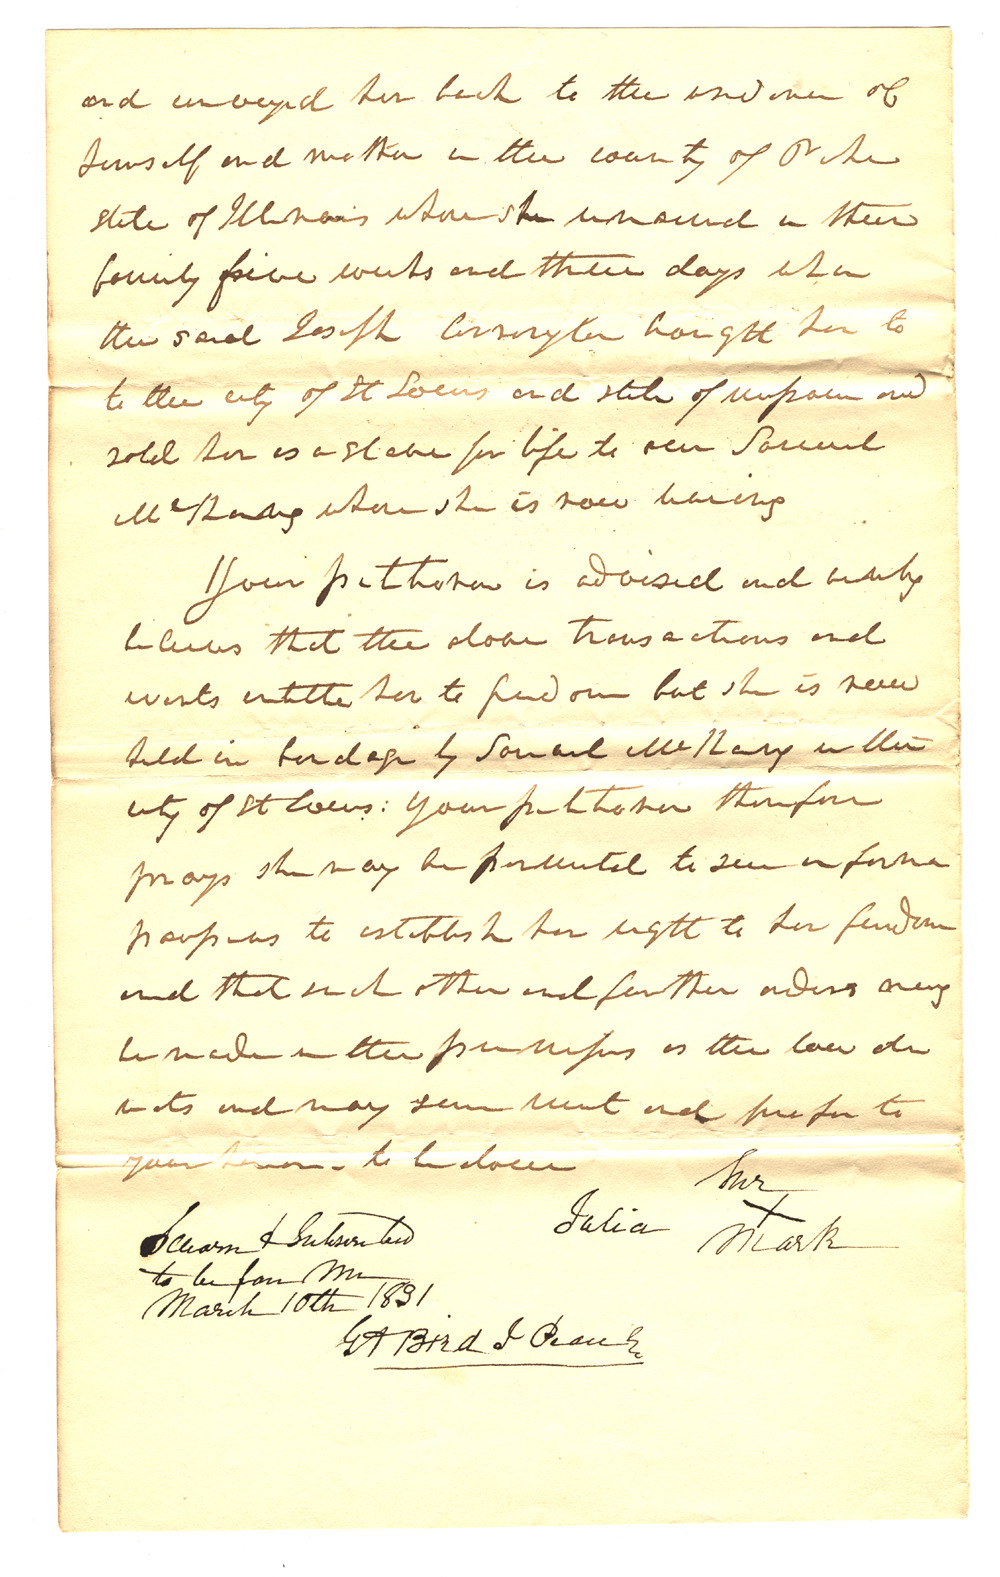 and conveyed her back to the residence of
himself and mother in the county of Pike
state of Illinois where she remained in their
family five weeks and three days when
the said Joseph Corrington brought her to
to the city of St Louis and state of missouri and
sold her as a slave for life to one Samuel
McKenney where she is now living
Your petitioner is advised and verily
believes that the above transactions and
events entitle her to freedom but she is now
held in bondage by Samuel McKenney in the
city of St Louis: Your petitioner therefore
prays she may be permitted to sue in forma
pauperis to establish her right to her freedom
and that such other and further orders may
be made in the premises as the law di
rects and may seem meet and proper to
your honor to be done
Her
Julia X
Mark
Sworn & Subscribed
to before Me
March 10th 1831
GA Bird J Peace